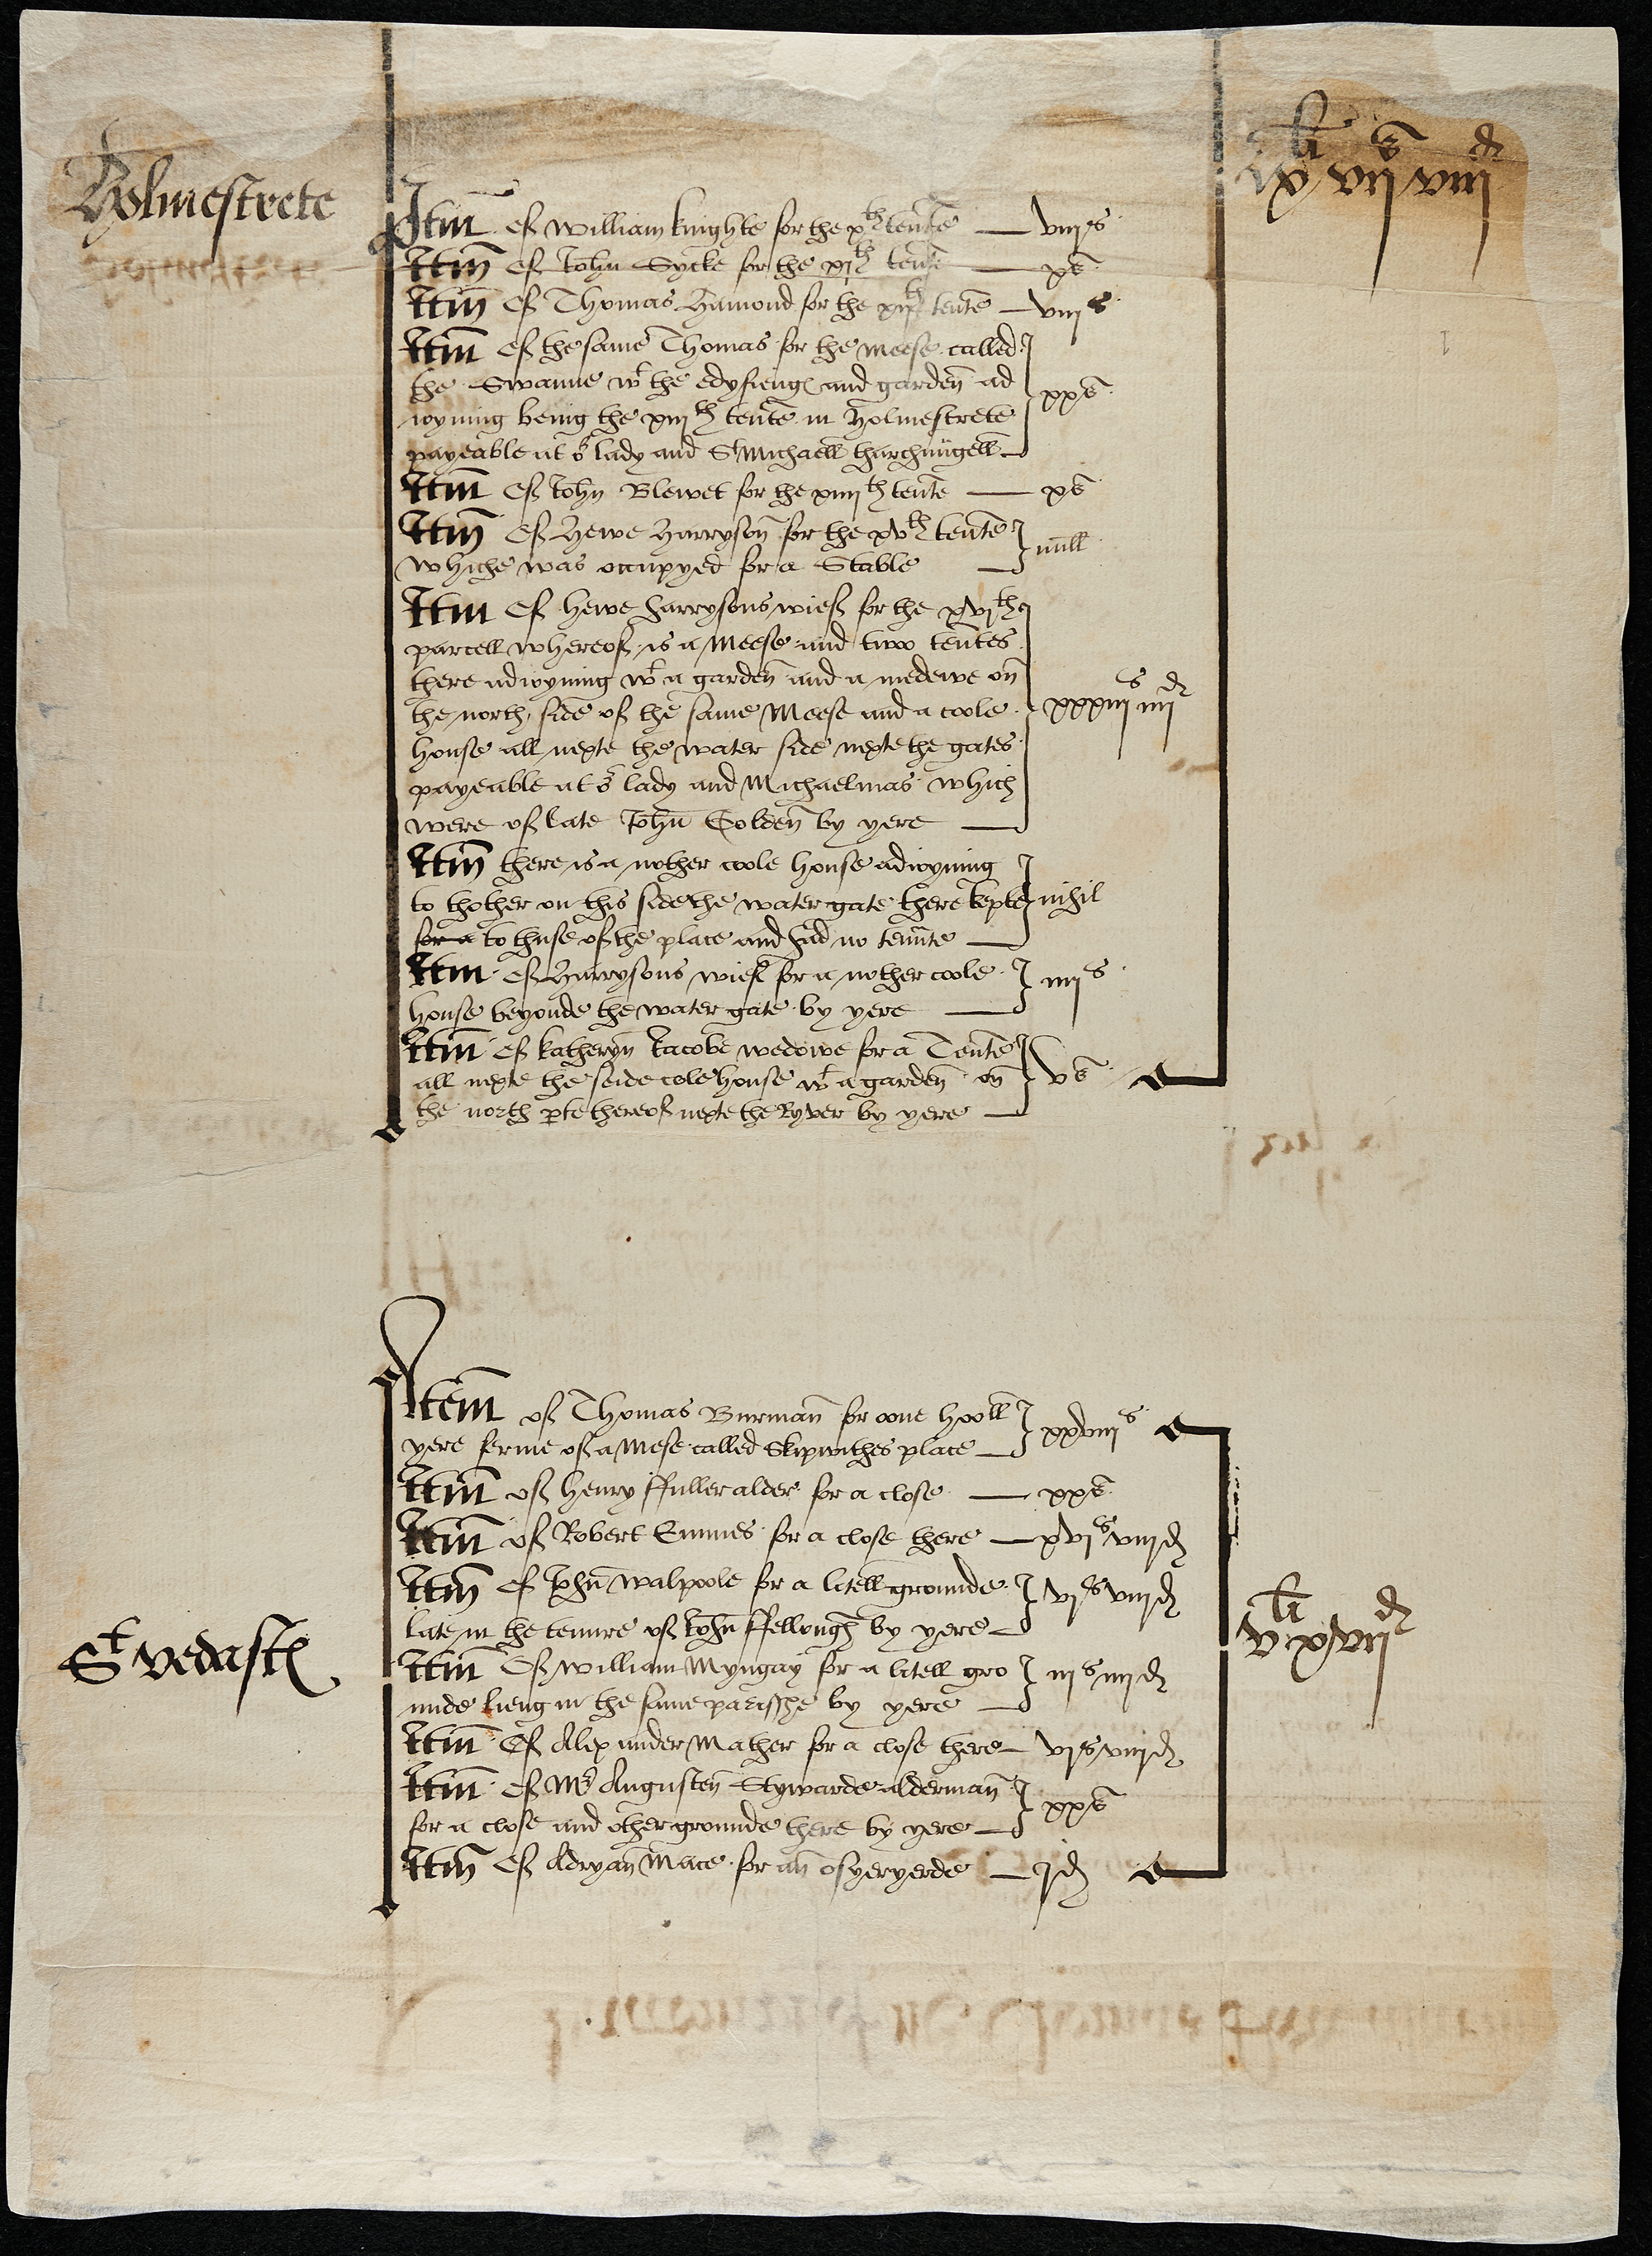 Holmestrete
Itm̄ of William Knighte for the xth tente — viijs
Itm̄ of John Sycke for the xjth tente — xs
Itm̄ of Thomas Hamond for the xijth tente — viijs
Itm̄ of the same Thomas for the meese called
the Swanne wt the edyfieng and garden ad
ioyning being the xiijth tente in Holmestrete
payeable at or lady and St Michaell tharchungell — xxs
Itm̄ of John Blewet for the xiiijth tente — xs
Itm̄ of Hewe Harryson for the xvth tente
whiche was occupyed for a Stable — null
Itm̄ of Hewe Harrysons wief for the xvjth
parcell whereof is a Meese and two tentes
there adioyning wt a garden and a medewe on
the north side of the same Meese and a coole
house all nexte the water side nexte the gates
payeable at or lady and Michaelmas which
were of late John Golden by yere — xxxiijs iiijd
Itm̄ there is a nother coole house adioyning
to thother on this side the water gate there kepte
for a to thuse of the place and had no tennte — nihil
Itm̄ of Harrysons wief for a nother coole
house beyonde the water gate by yere — iiijs
Itm̄ of Katheryn Jacobe wedowe for a Tente
all nexte the seide cole house wt a garden on
the north pte thereof nexte the Ryver by yere — vs
St Vedast
Item of Thomas Burman for oone hooll
yere ferme of a Mese called Skipwithes place — xxviijs
Itm̄ of Henry ffuller alder for a close — xxs
Itm̄ of Robert Emmes for a close there — xvjs viijd
Itm̄ of John Walpoole for a litell grounde
late in the tenure of John ffellough by yere — vjs viijd
Itm̄ of William Myngay for a litell gro
unde lieng in the same parisshe by yere — iijs iiijd
Itm̄ of Alexander Mather for a close there — vjs viijd
Itm̄ of Mr Augusten Stywarde alderman
for a close and other grounde there by yere — xxs
Itm̄ of Adryan Mace for an osyeryerde — jd
vli xvijd